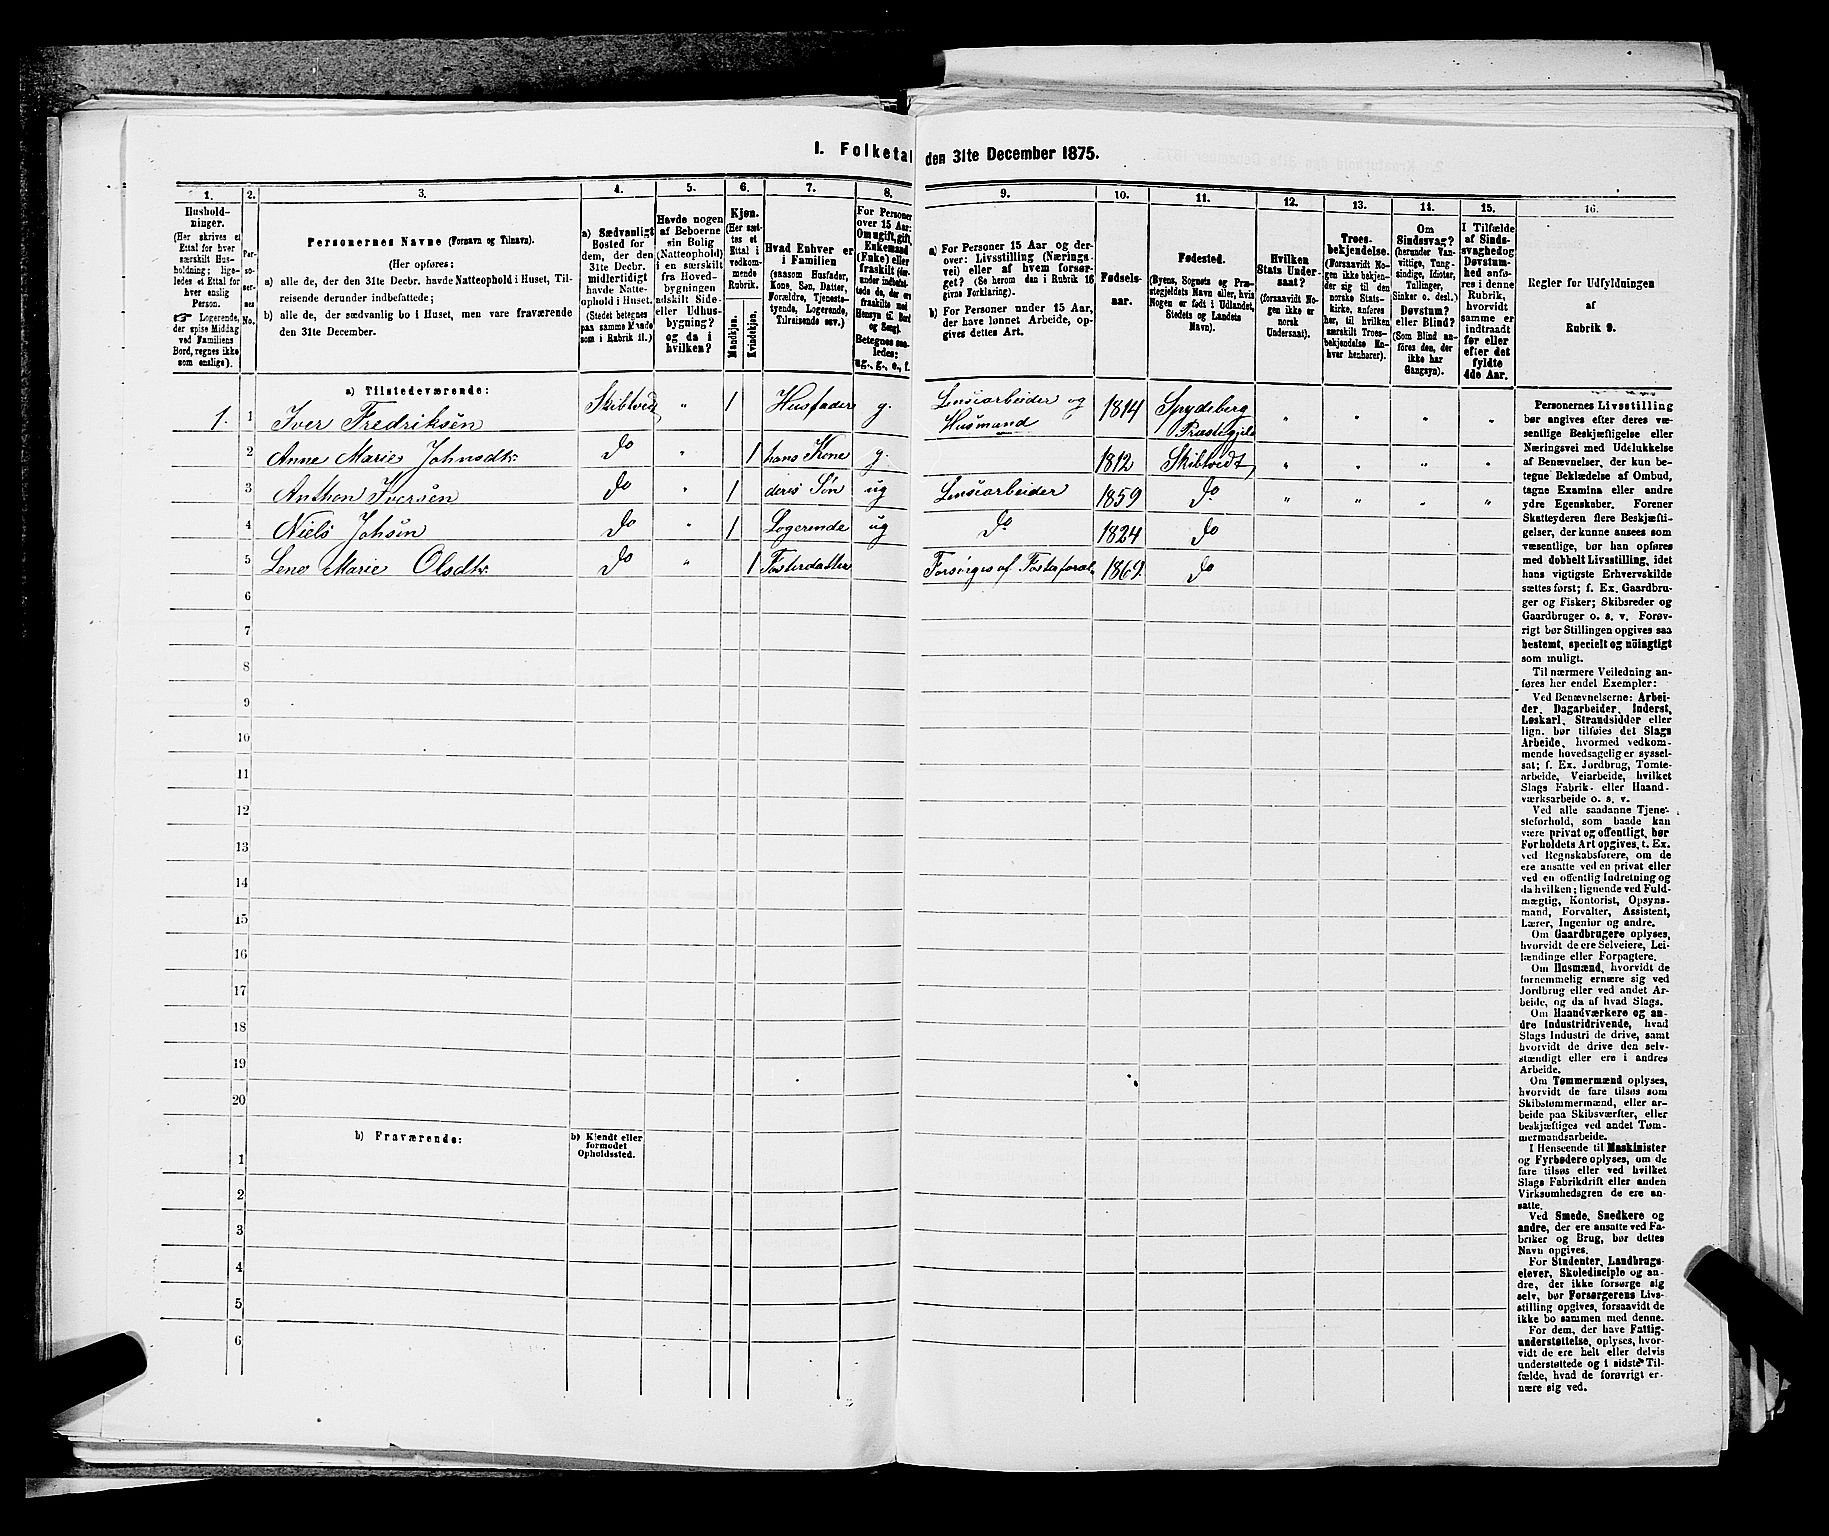 I. Folketal den 31te December 1875.
1. 2. 3. 4. 5. 6. 7. 8. 9. 10. 11. 12. 13. 14. 15. 16.
Hushold-
ninger.
(Her skrives et
Ettal for hver
særskilt Hus-
holdning; lige-
ledes et Ettal for
hver enslig
Person.
☞ Logerende,
der spise Middag
ved Familiens
Bord, regnes ikke
som enslige).
Per-
so-
ner-
nes
No.
Personernes Navne (Fornavn og Tilnavn).
(Her opføres:
a) alle de, der den 31te Decbr. havde Natteophold i Huset, Til-
reisende derunder indbefattede;
b) alle de, der sædvanlig bo i Huset, men vare fraværende
den 31te December.
a) Sædvanligt
Bosted for
dem, der den
31te Decbr.
midlertidigt
havde Natte-
ophold i Huset.
(Stedet betegnes
paa samme Maade
som i Rubrik 11.)
Havde nogen
af Beboerne
sin Bolig
(Natteophold)
i en særskilt
fra Hoved-
bygningen
adskilt Side-
eller Udhus-
bygning?
og da i
hvilken?
Kjøn.
(Her sæt-
tes et
Ettal i
vedkom-
mende
Rubrik.
Mandkjøn.
Kvindekjøn.
Hvad Enhver er
i Familien
(saasom Husfader,
Kone, Søn, Datter,
Forældre, Tjeneste-
tyende, Logerende,
Tilreisende osv.)
For Personer
over 15 Aar:
Om ugift, gift,
Enkemand
(Enke) eller
fraskilt (der-
under indbefat-
tede de, der ere
fraskilte med
Hensyn til Bord
og Seng).
Betegnes saa-
ledes:
ug., g., e., f.
a) For Personer 15 Aar og der-
over: Livsstilling (Nærings-
vei) eller af hvem forsør-
get? (Se herom den i Rubrik 16
givne Forklaring).
b) For Personer under 15 Aar,
der have lønnet Arbeide, op-
gives dettes Art.
Fødsels-
aar.
Fødested.
(Byens, Sognets og Præ-
stegjeldets Navn eller, hvis
Nogen er født i Udlandet,
Stedets og Landets
Navn).
Hvilken
Stats Under-
saat?
(forsaavidt No-
gen ikke er
norsk
Undersaat).
Troes-
bekjendelse.
(Forsaavidt No-
gen ikke bekjen-
der sig til den
norske Stats-
kirke, anføres
her, til hvilken
særskilt Troes-
bekjendelse En-
hver henhører).
Om
Sindssvag?
(herunder Van-
vittige, Tung-
sindige, Idioter,
Tullinger,
Sinker o. desl.)
Døvstum?
eller Blind?
(Som Blind an-
føres den, der
ikke har
Gangsyn).
I Tilfælde
af Sinds-
svaghed og
Døvstum-
hed anfø-
res i denne
Rubrik,
hvorvidt
samme er
indtraadt
før eller
efter det
fyldte
4de Aar.
Regler for Udfyldningen
af
Rubrik 9.
a) Tilstedeværende:
1. 1 Iver Fredriksen Skibtvedt " 1 Husfader g. Lensiarbeider og Husmand 1814 Spydeberg Præstegjeld " " " "
2 Anne Marie Johnsdtr. Do " 1 hans Kone g. 1812 Skibtvedt " " " "
3 Anthon Iversen Do " 1 deris Søn ug Lensiarbeider 1859 Do " " " "
4 Niels Johsen Do " 1 Logerende ug Do 1824 Do
5 Lene Marie Olsdtr. Do " 1 Fosterdatter Forsørges af Fosterforæl. 1869. Do
6
7
8
9
10
11
12
13
14
15
16
17
18
19
20
b) Fraværende:
b) Kjendt eller
formodet
Opholdssted.
1
2
3
4
5
6
Personernes Livsstilling
bør angives efter deres væ-
sentlige Beskjæftigelse eller
Næringsvei med Udelukkelse
af Benævnelser, der kun be-
tegne Beklædelse af Ombud,
tagne Examina eller andre
ydre Egenskaber. Forener
Skatteyderen flere Beskjæfti-
gelser, der kunne ansees som
væsentlige, bør han opføres
med dobbelt Livsstilling, idet
hans vigtigste Erhvervskilde
sættes først; f. Ex. Gaardbru-
ger og Fisker; Skibsreder og
Gaardbruger o. s. v. Forøv-
rigt bør Stillingen opgives saa
bestemt, specielt og nøiagtigt
som muligt.
Til nærmere Veiledning an-
føres her endel Exempler:
Ved Benævnelserne: Arbei-
der, Dagarbeider, Inderst,
Løskarl, Strandsidder eller
lign. bør tilføies det Slags
Arbeide, hvormed vedkom-
mende hovedsagelig er syssel-
sat; f. Ex. Jordbrug, Tomte-
arbeide, Veiarbeide, hvilket
Slags Fabrik- eller Haand-
værksarbeide o. s. v.
Ved alle saadanne Tjene-
steforhold, som baade kan
være privat og offentligt, bør
Forholdets Art opgives, t. Ex.
ved Regnskabsførere, om de
ere ansatte ved en privat eller
ved en offentlig Indretning og
da hvilken; lignende ved Fuld-
mægtig, Kontorist, Opsyns-
mand, Forvalter, Assistent,
Lærer, Ingeniør og andre.
Om Gaardbrugere oplyses,
hvorvidt de ere Selveiere, Lei-
lændinge eller Forpagtere.
Om Husmænd, hvorvidt de
fornemmelig ernære sig ved
Jordbrug eller ved andet Ar-
beide, og da af hvad Slags.
Om Haandværkere og an-
dre Industridrivende, hvad
Slags Industri de drive, samt
hvorvidt de drive den selv-
stændigt eller ere i andres
Arbeide.
Om Tømmermænd oplyses,
hvorvidt de fare tilsøs som
Skibstømmermænd, eller ar-
beide paa Skibsværfter, eller
beskjæftiges ved andet Tøm-
mermandsarbeide.
I Henseende til Maskinister
og Fyrbødere oplyses, om de
fare tilsøs eller ved hvilket
Slags Fabrikdrift eller anden
Virksomhedsgren de ere an-
satte.
Ved Smede, Snedkere og
andre, der ere ansatte ved Fa-
briker og Brug, bør dettes
Navn opgives.
For Studenter, Landbrugs-
elever, Skoledisciple og an-
dre, der ikke forsørge sig
selv, bør Forsørgerens Livs-
stilling opgives, forsaavidt de
ikke bo sammen med denne.
For dem, der have Fattig-
understøttelse, oplyses, hvor-
vidt de ere helt eller delvis
understøttede og i sidste Til-
fælde, hvad de forøvrigt er-
nære sig ved.